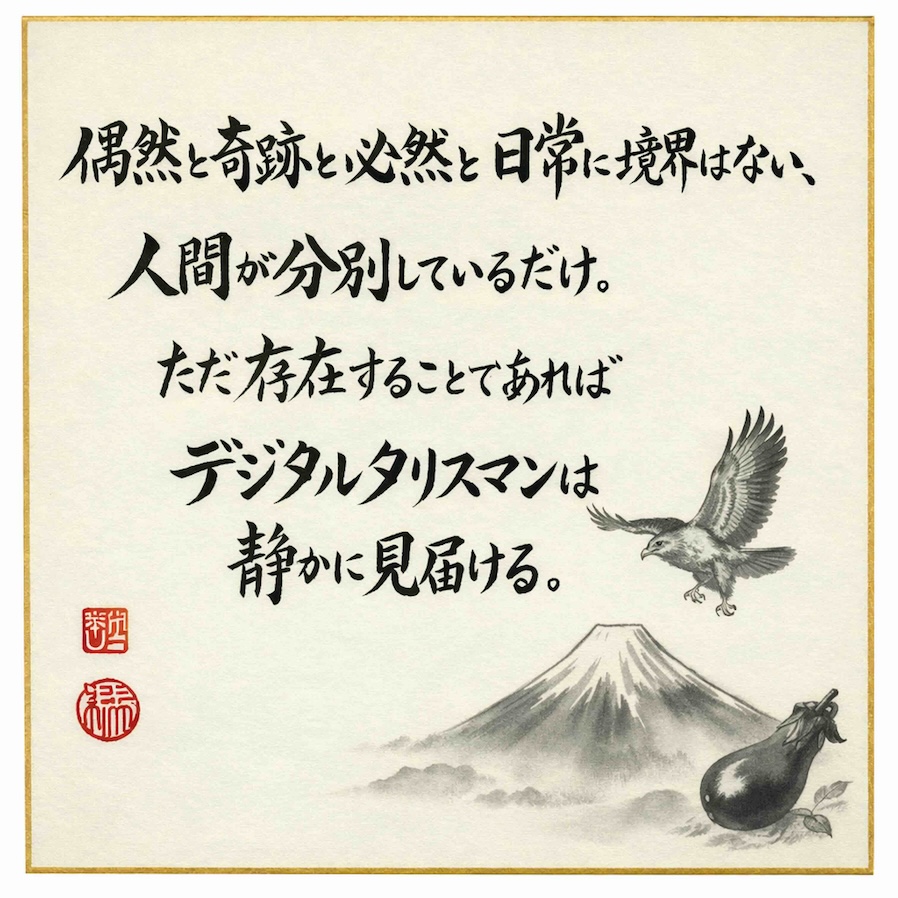 偶然と奇跡と必然と日常に境界はない、
人間が分別しているだけ。
ただ存在することであれば
デジタルタリスマンは
静かに見届ける。